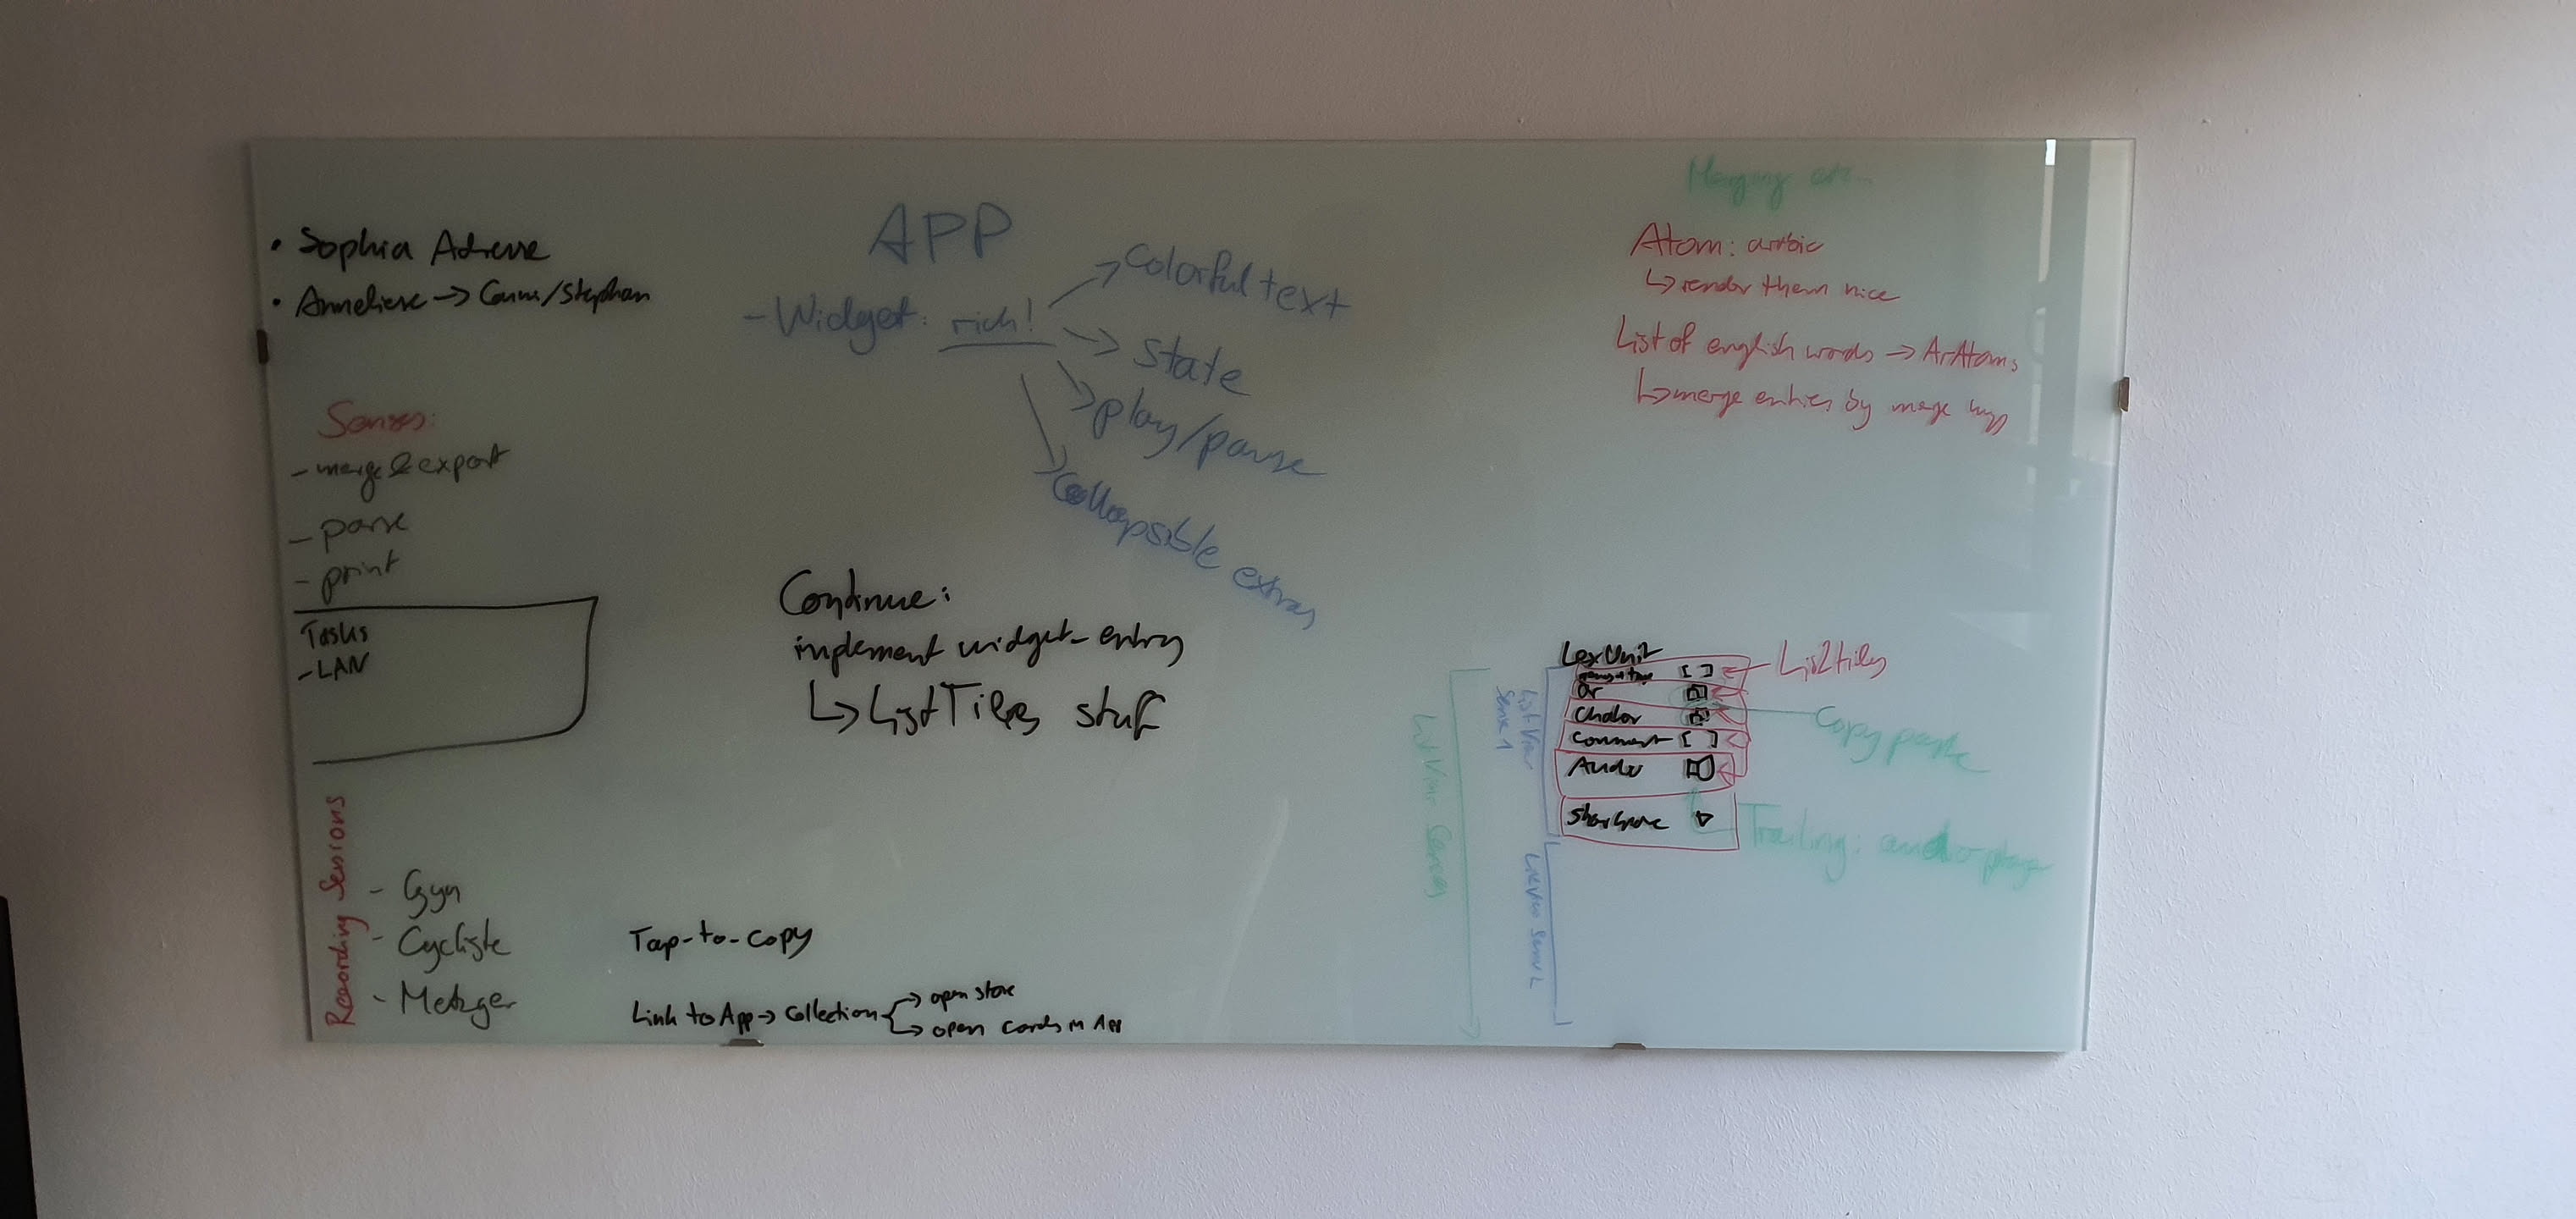 • Sophia
• Anneliese → /Stephan
Senses:
- merge & export
- parse
- print
Tasks
- LAN
Recording Sessions
- Gyn
- Cycliste
- Metzger
APP
- Widget: rich!
→ Colorful text
→ state
→ play/pause
→ Collapsible extras
Continue:
implement widget-entry
↳ ListTiles stuff
Tap-to-copy
Link to App → Collection
→ open store
→ open cards in App
Merging
Atom: arabic
↳ render them nice
List of english words → ArAtoms
↳ merge entries by merge
LexUnit
Ar
Chalor
Comment [ ]
Audio
← ListTiles
Copy paste
Trailing: audio player
ListView Senses
ListView
Sense 1
ListView Sense 2